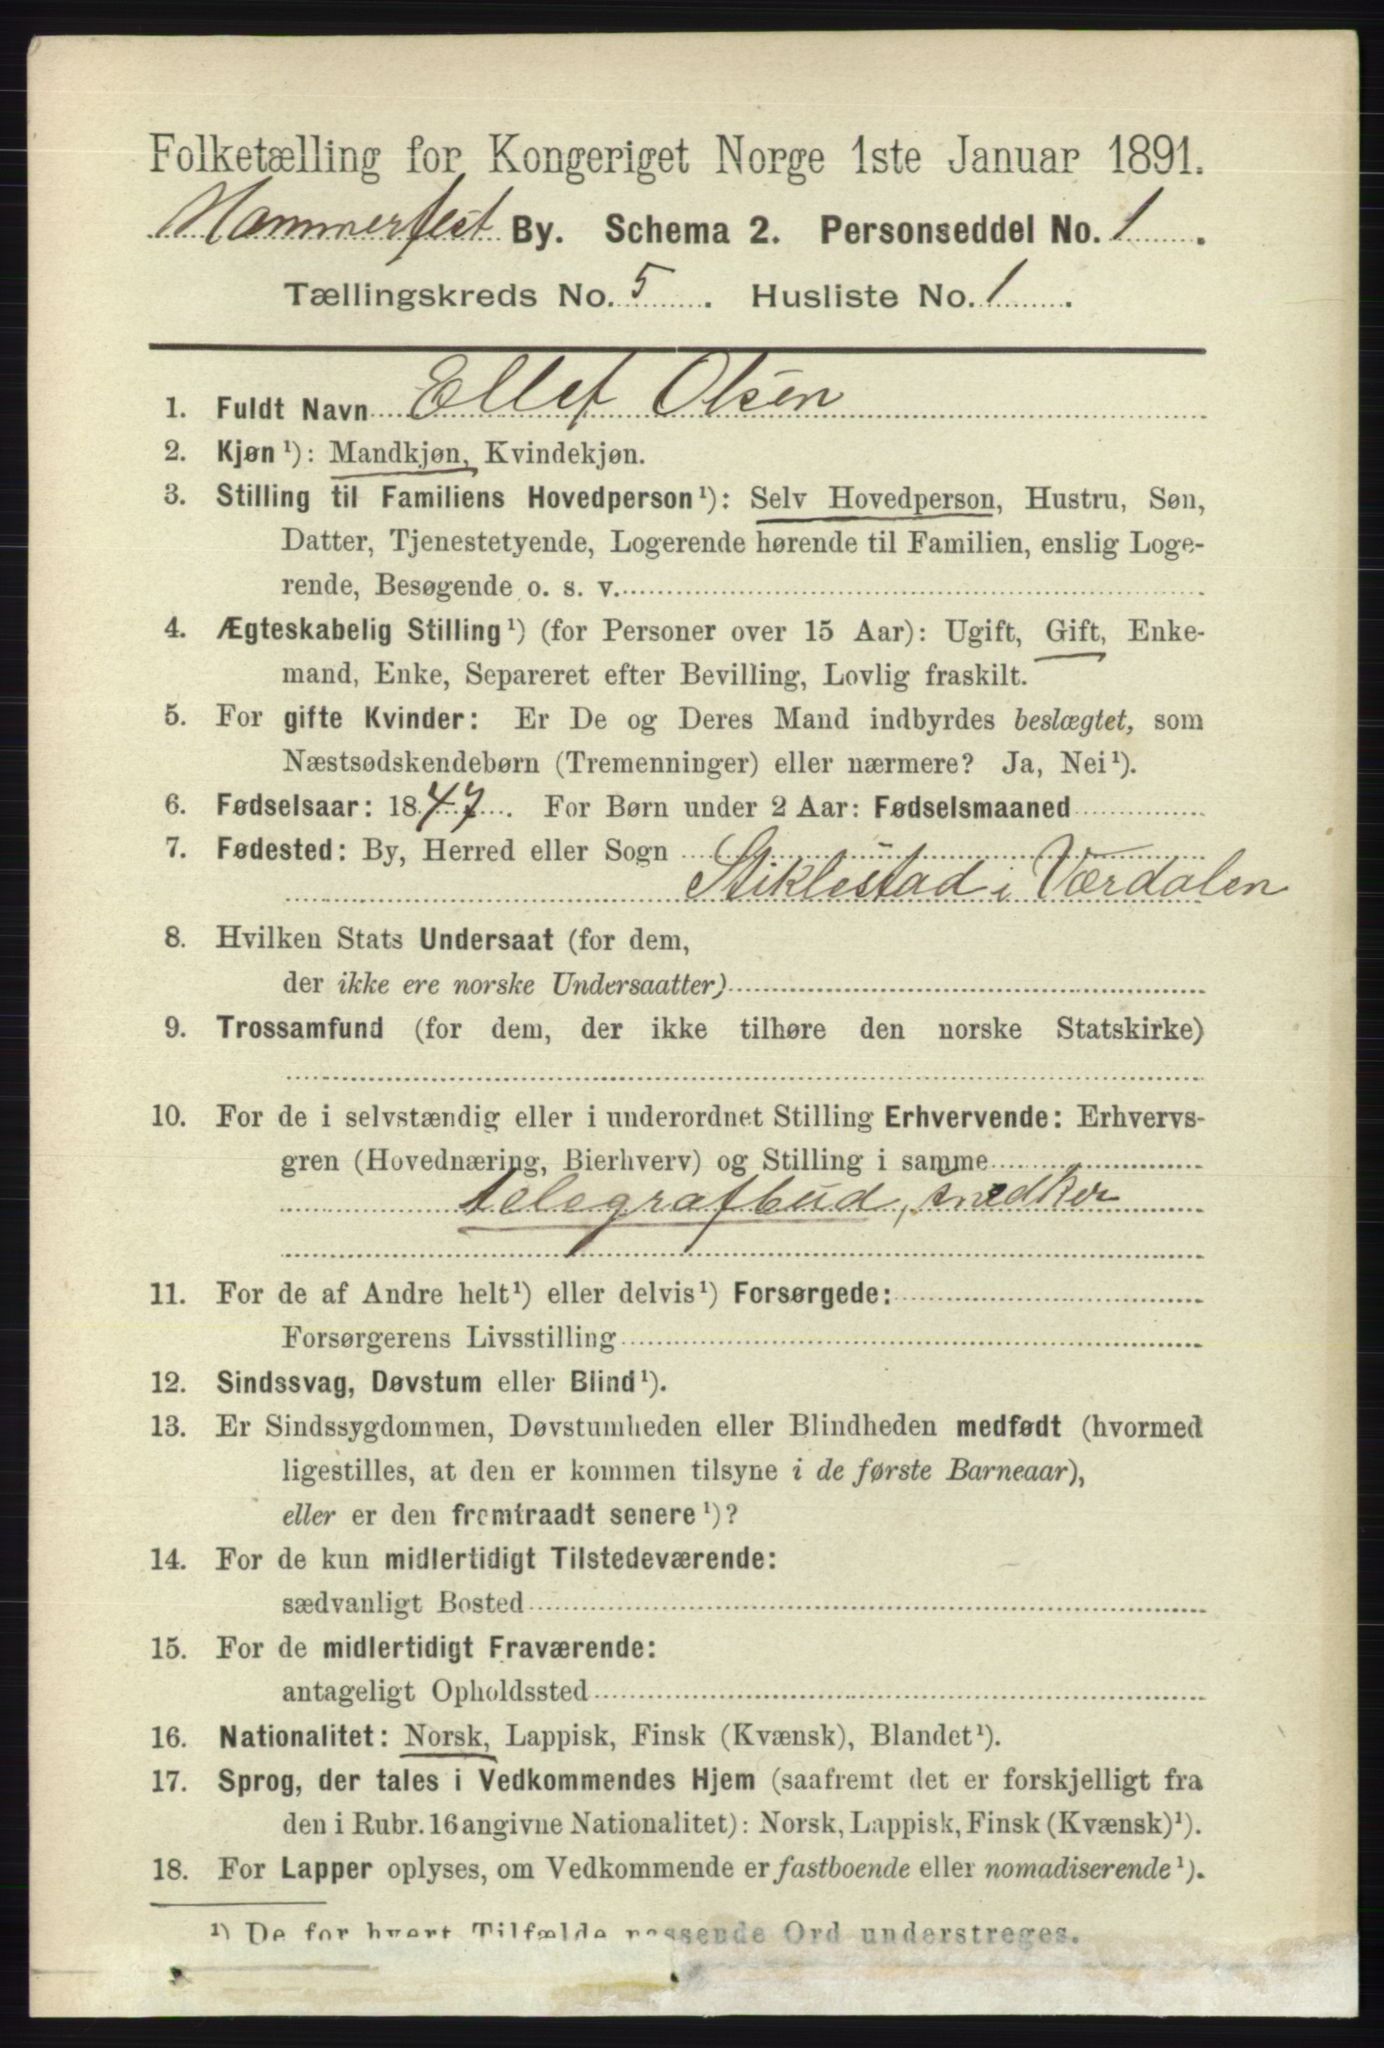 Folketælling for Kongeriget Norge 1ste Januar 1891.
Hammerfest By. Schema 2. Personseddel No. 1.
Tællingskreds No. 5. Husliste No. 1.
1. Fuldt Navn Ellef Olsen
2. Kjøn¹): Mandkjøn, Kvindekjøn.
3. Stilling til Familiens Hovedperson¹): Selv Hovedperson, Hustru, Søn,
Datter, Tjenestetyende, Logerende hørende til Familien, enslig Loge-
rende, Besøgende o. s. v.
4. Ægteskabelig Stilling¹) (for Personer over 15 Aar): Ugift, Gift, Enke-
mand, Enke, Separeret efter Bevilling, Lovlig fraskilt.
5. For gifte Kvinder: Er De og Deres Mand indbyrdes beslægtet, som
Næstsødskendebørn (Tremenninger) eller nærmere? Ja, Nei¹).
6. Fødselsaar: 1847. For Børn under 2 Aar: Fødselsmaaned
7. Fødested: By, Herred eller Sogn
Stiklestad i Værdalen
8. Hvilken Stats Undersaat (for dem,
der ikke ere norske Undersaatter)
9. Trossamfund (for dem, der ikke tilhøre den norske Statskirke)
10. For de i selvstændig eller i underordnet Stilling Erhvervende: Erhvervs-
gren (Hovednæring, Bierhverv) og Stilling i samme
telegrafbud, snedker
11. For de af Andre helt¹) eller delvis¹) Forsørgede:
Forsørgerens Livsstilling
12. Sindssvag, Døvstum eller Blind¹).
13. Er Sindssygdommen, Døvstumheden eller Blindheden medfødt (hvormed
ligestilles, at den er kommen tilsyne i de første Barneaar),
eller er den fremtraadt senere¹)?
14. For de kun midlertidigt Tilstedeværende:
sædvanligt Bosted
15. For de midlertidigt Fraværende:
antageligt Opholdssted
16. Nationalitet: Norsk, Lappisk, Finsk (Kvænsk), Blandet¹).
17. Sprog, der tales i Vedkommendes Hjem (saafremt det er forskjelligt fra
den i Rubr. 16 angivne Nationalitet): Norsk, Lappisk, Finsk (Kvænsk)¹).
18. For Lapper oplyses, om Vedkommende er fastboende eller nomadiserende¹).
¹) De for hvert Tilfælde passende Ord understreges.